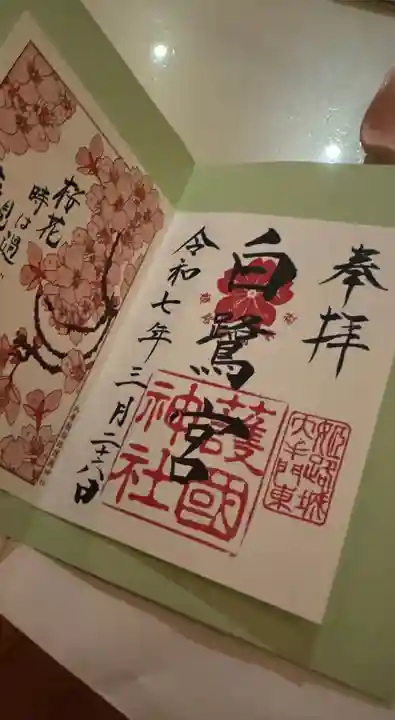 奉拝
白鷺宮
護國
神社
姫路城
大手門東
令和七年三月二十六日
桜花
時は